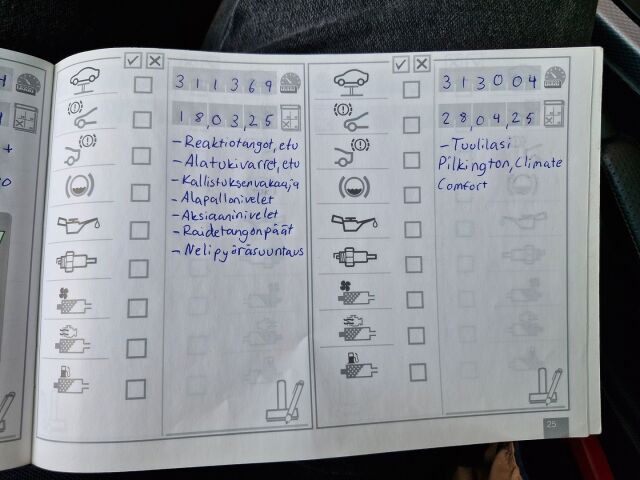 311369
18,03,25
- Reaktiotangot, etu
- Alatukivarret, etu
- Kallistuksenvakaaja
- Alapallonivelet
- Aksiaaninivelet
- Raidetangonpäät
- Nelipyöräsuuntaus
313004
28,04,25
- Tuulilasi
Pilkington, Climate
Comfort
25